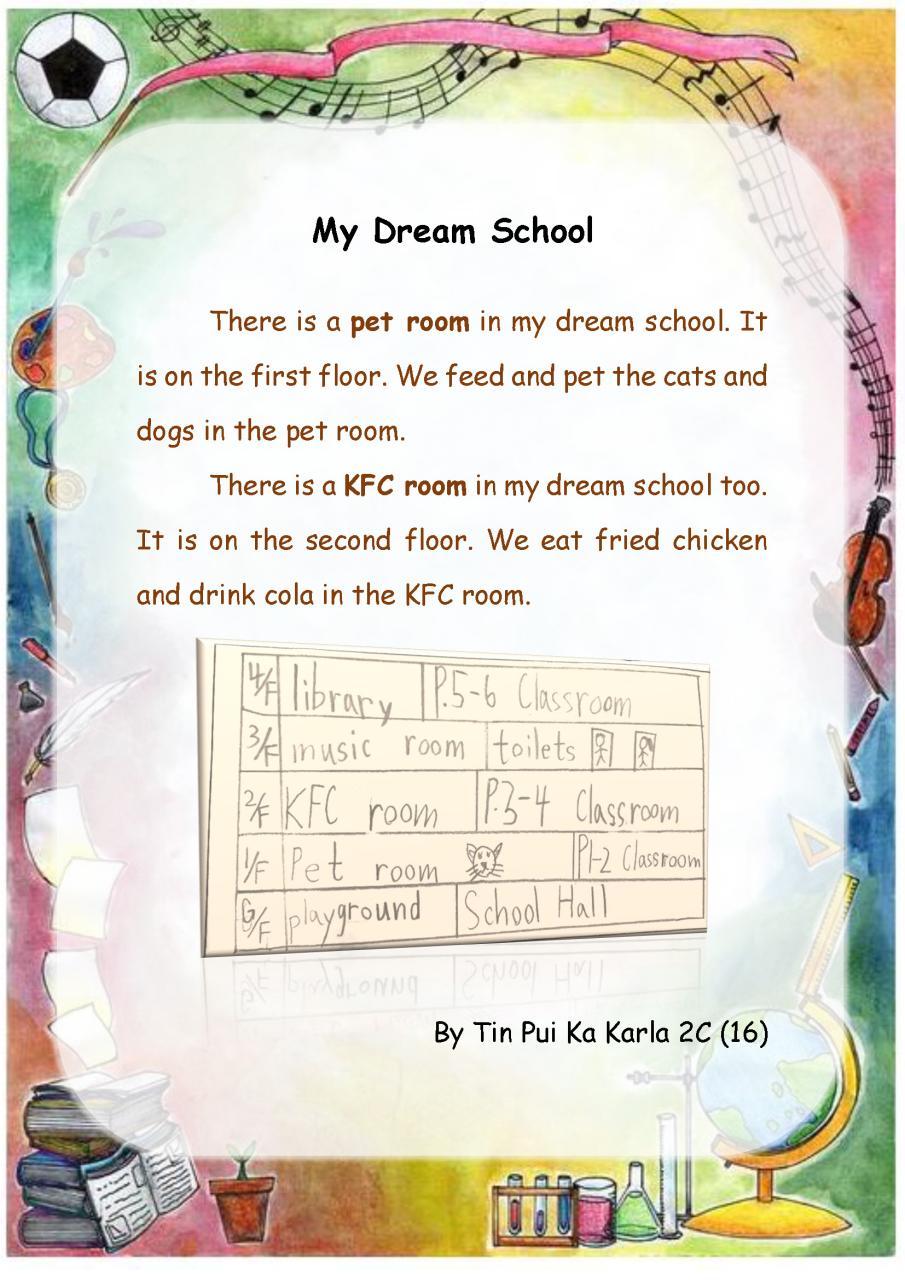 My Dream School
There is a pet room in my dream school. It
is on the first floor. We feed and pet the cats and
dogs in the pet room.
There is a KFC room in my dream school too.
It is on the second floor. We eat fried chicken
and drink cola in the KFC room.
4/F library P.5-6 Classroom
3/F music room toilets
2/F KFC room P.3-4 Classroom
1/F Pet room P1-2 Classroom
G/F playground School Hall
By Tin Pui Ka Karla 2C (16)